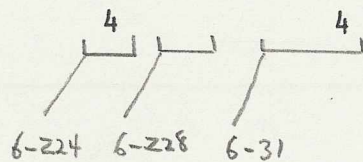 4 4
6-Z24 6-Z28 6-31